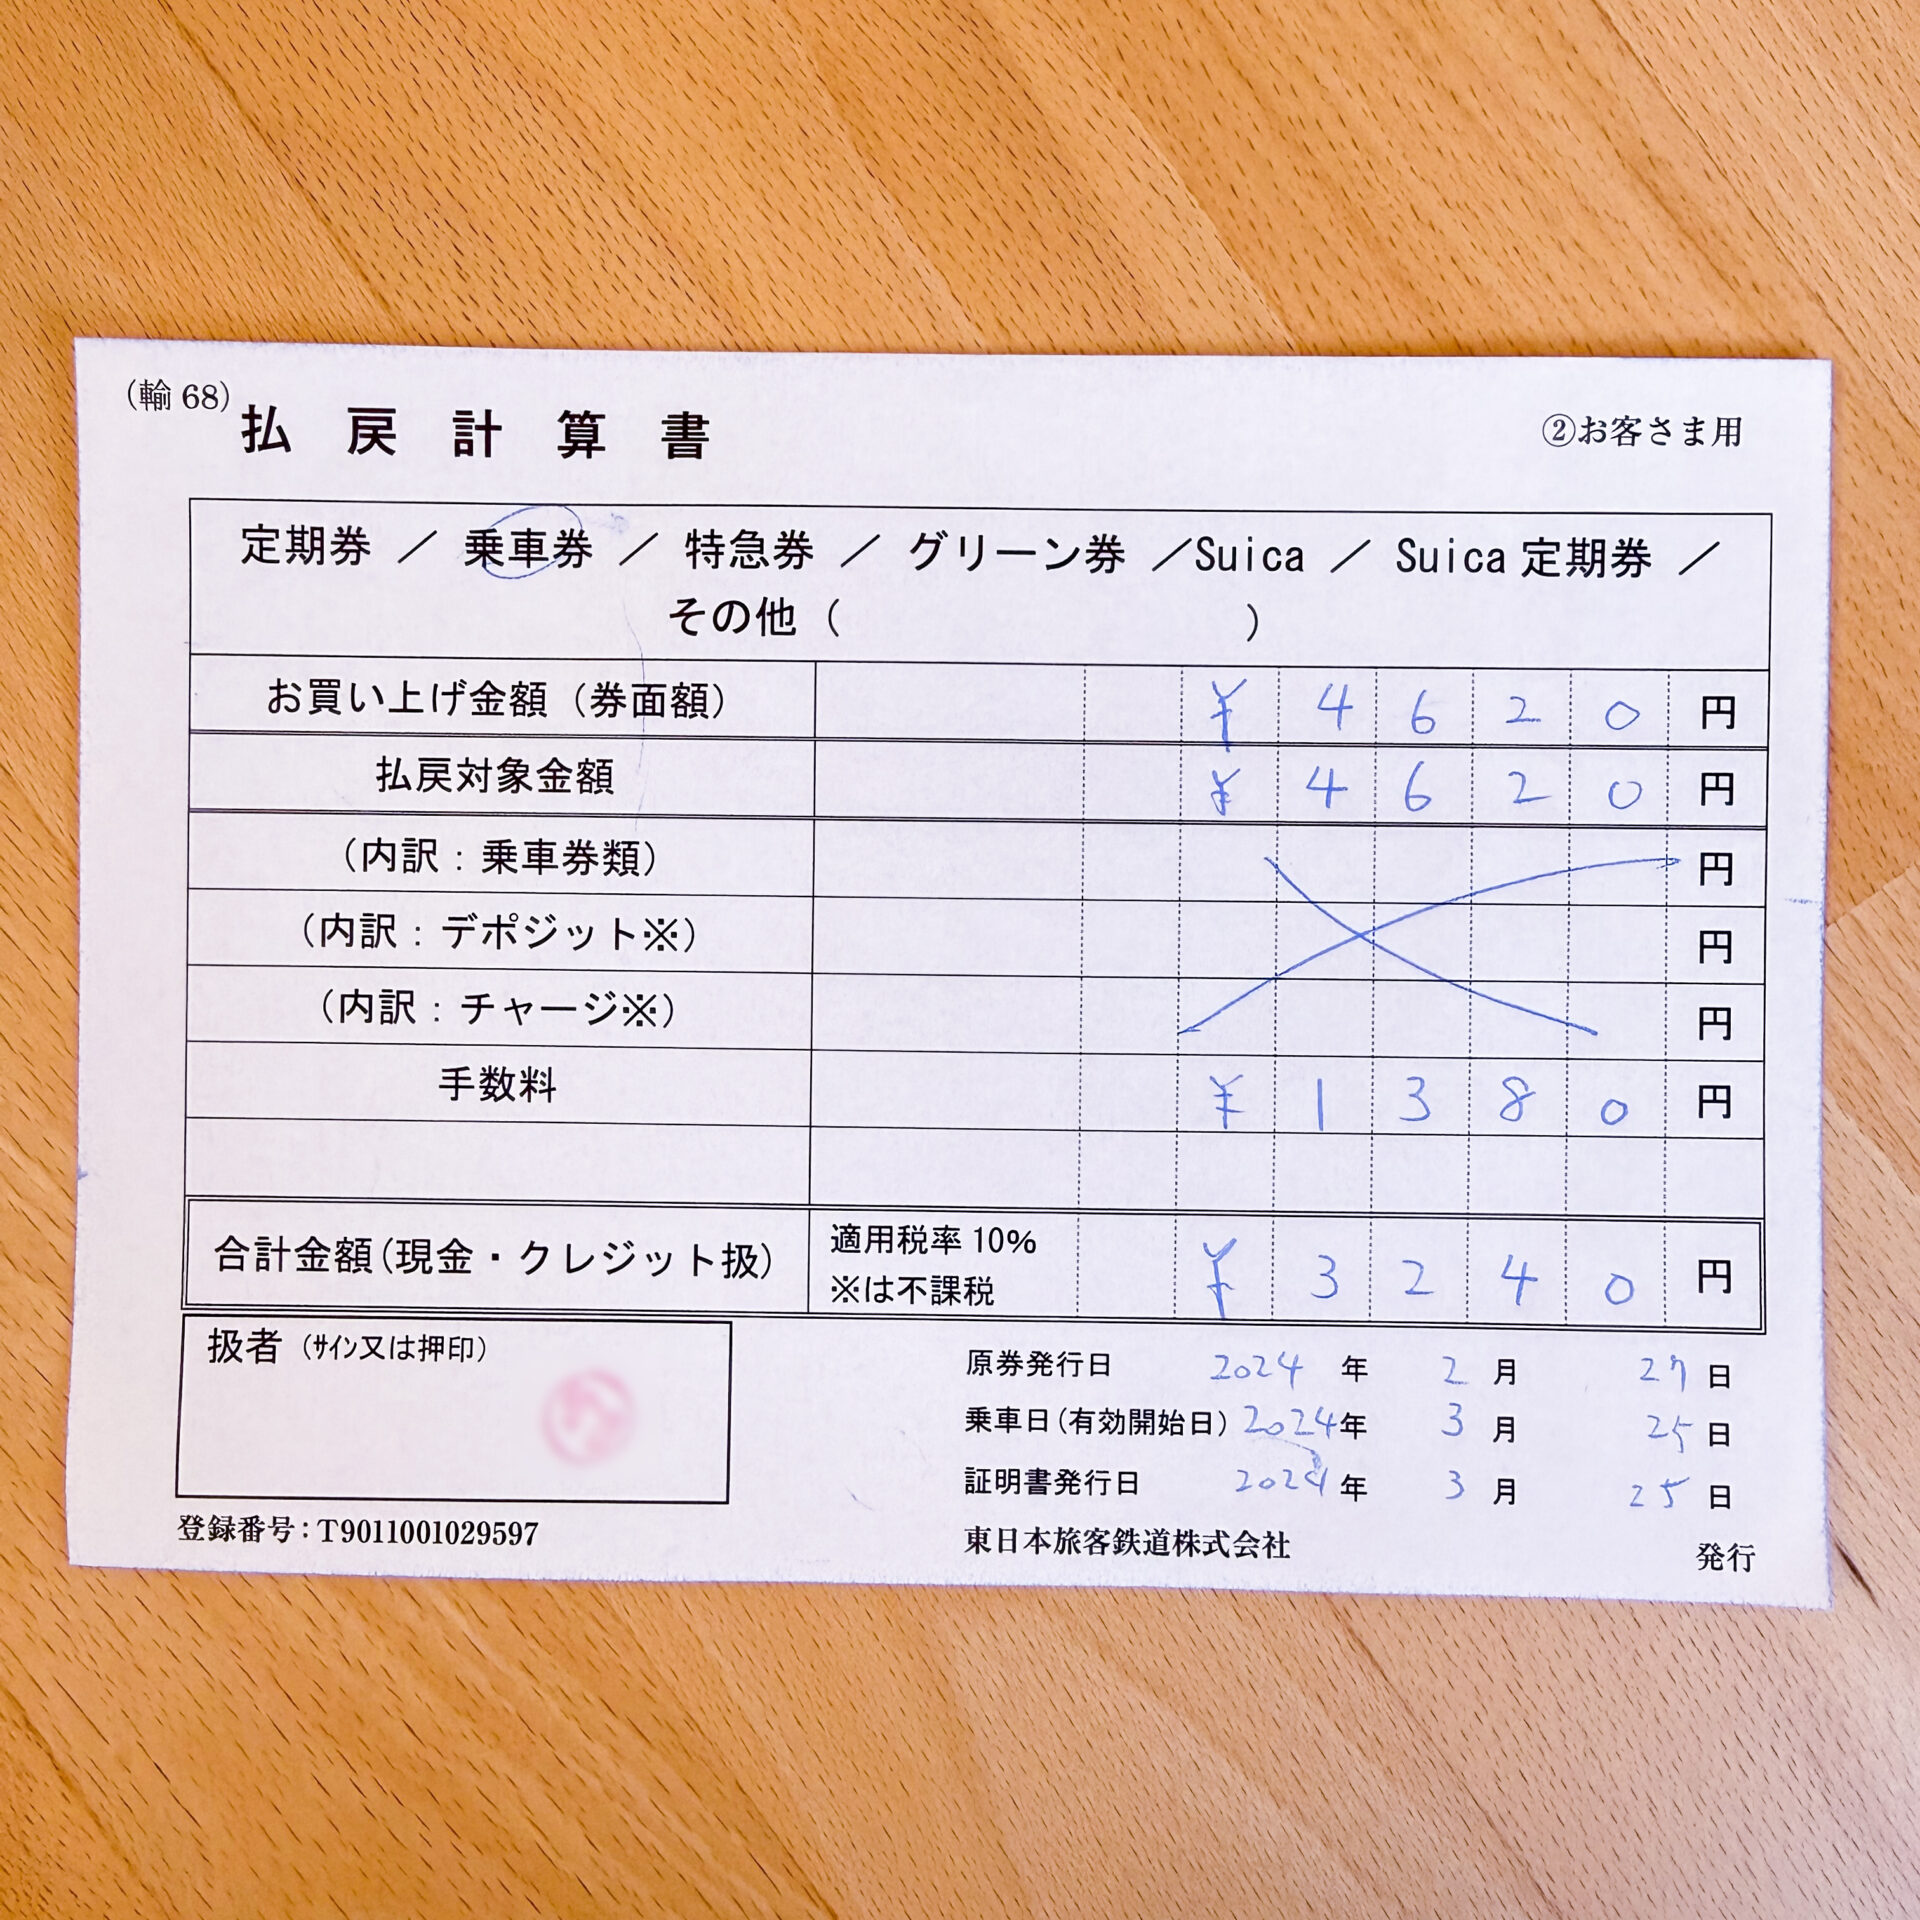 (輸68)
払戻計算書
②お客さま用
定期券 ／ 乗車券 ／ 特急券 ／ グリーン券 ／Suica ／ Suica定期券 ／
その他 ( )
お買い上げ金額（券面額） ¥ 4 6 2 0 円
払戻対象金額 ¥ 4 6 2 0 円
（内訳：乗車券類） 円
（内訳：デポジット※） 円
（内訳：チャージ※） 円
手数料 ¥ 1 3 8 0 円
合計金額(現金・クレジット扱) 適用税率10% ¥ 3 2 4 0 円
※は不課税
扱者（ｻｲﾝ又は押印）
原券発行日 2024 年 2 月 27 日
乗車日(有効開始日) 2024年 3 月 25 日
証明書発行日 2024 年 3 月 25 日
登録番号：T9011001029597
東日本旅客鉄道株式会社 発行